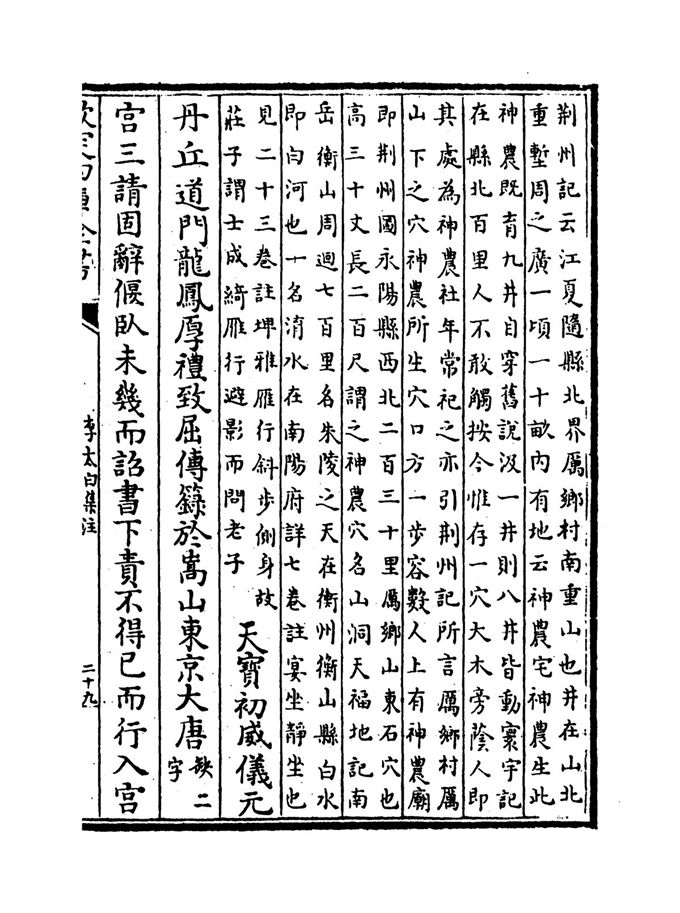 荆州記云江夏隨縣北界厲鄉村南重山也井在山北
重塹周之廣一頃一十畝內有地云神農宅神農生此
神農既育九井自穿舊說汲一井則八井皆動寰宇記
在縣北百里人不敢觸按今惟存一穴大木旁蔭人即
其處為神農社年常祀之亦引荆州記所言厲鄉村厲
山下之穴神農所生穴口方一步容數人上有神農廟
即荆州國永陽縣西北二百三十里厲鄉山東石穴也
高三十丈長二百尺謂之神農穴名山洞天福地記南
岳衡山周迴七百里名朱陵之天在衡州衡山縣白水
即白河也一名淯水在南陽府詳七卷註宴坐靜坐也
見二十三卷註埤雅雁行斜步側身故
莊子謂士成綺雁行避影而問老子
天寶初威儀元
丹丘道門龍鳳厚禮致屈傳籙於嵩山東京大唐缺二字
宫三請固辭偃臥未幾而詔書下責不得已而行入宫
欽定四庫全書
李太白集注
二十九